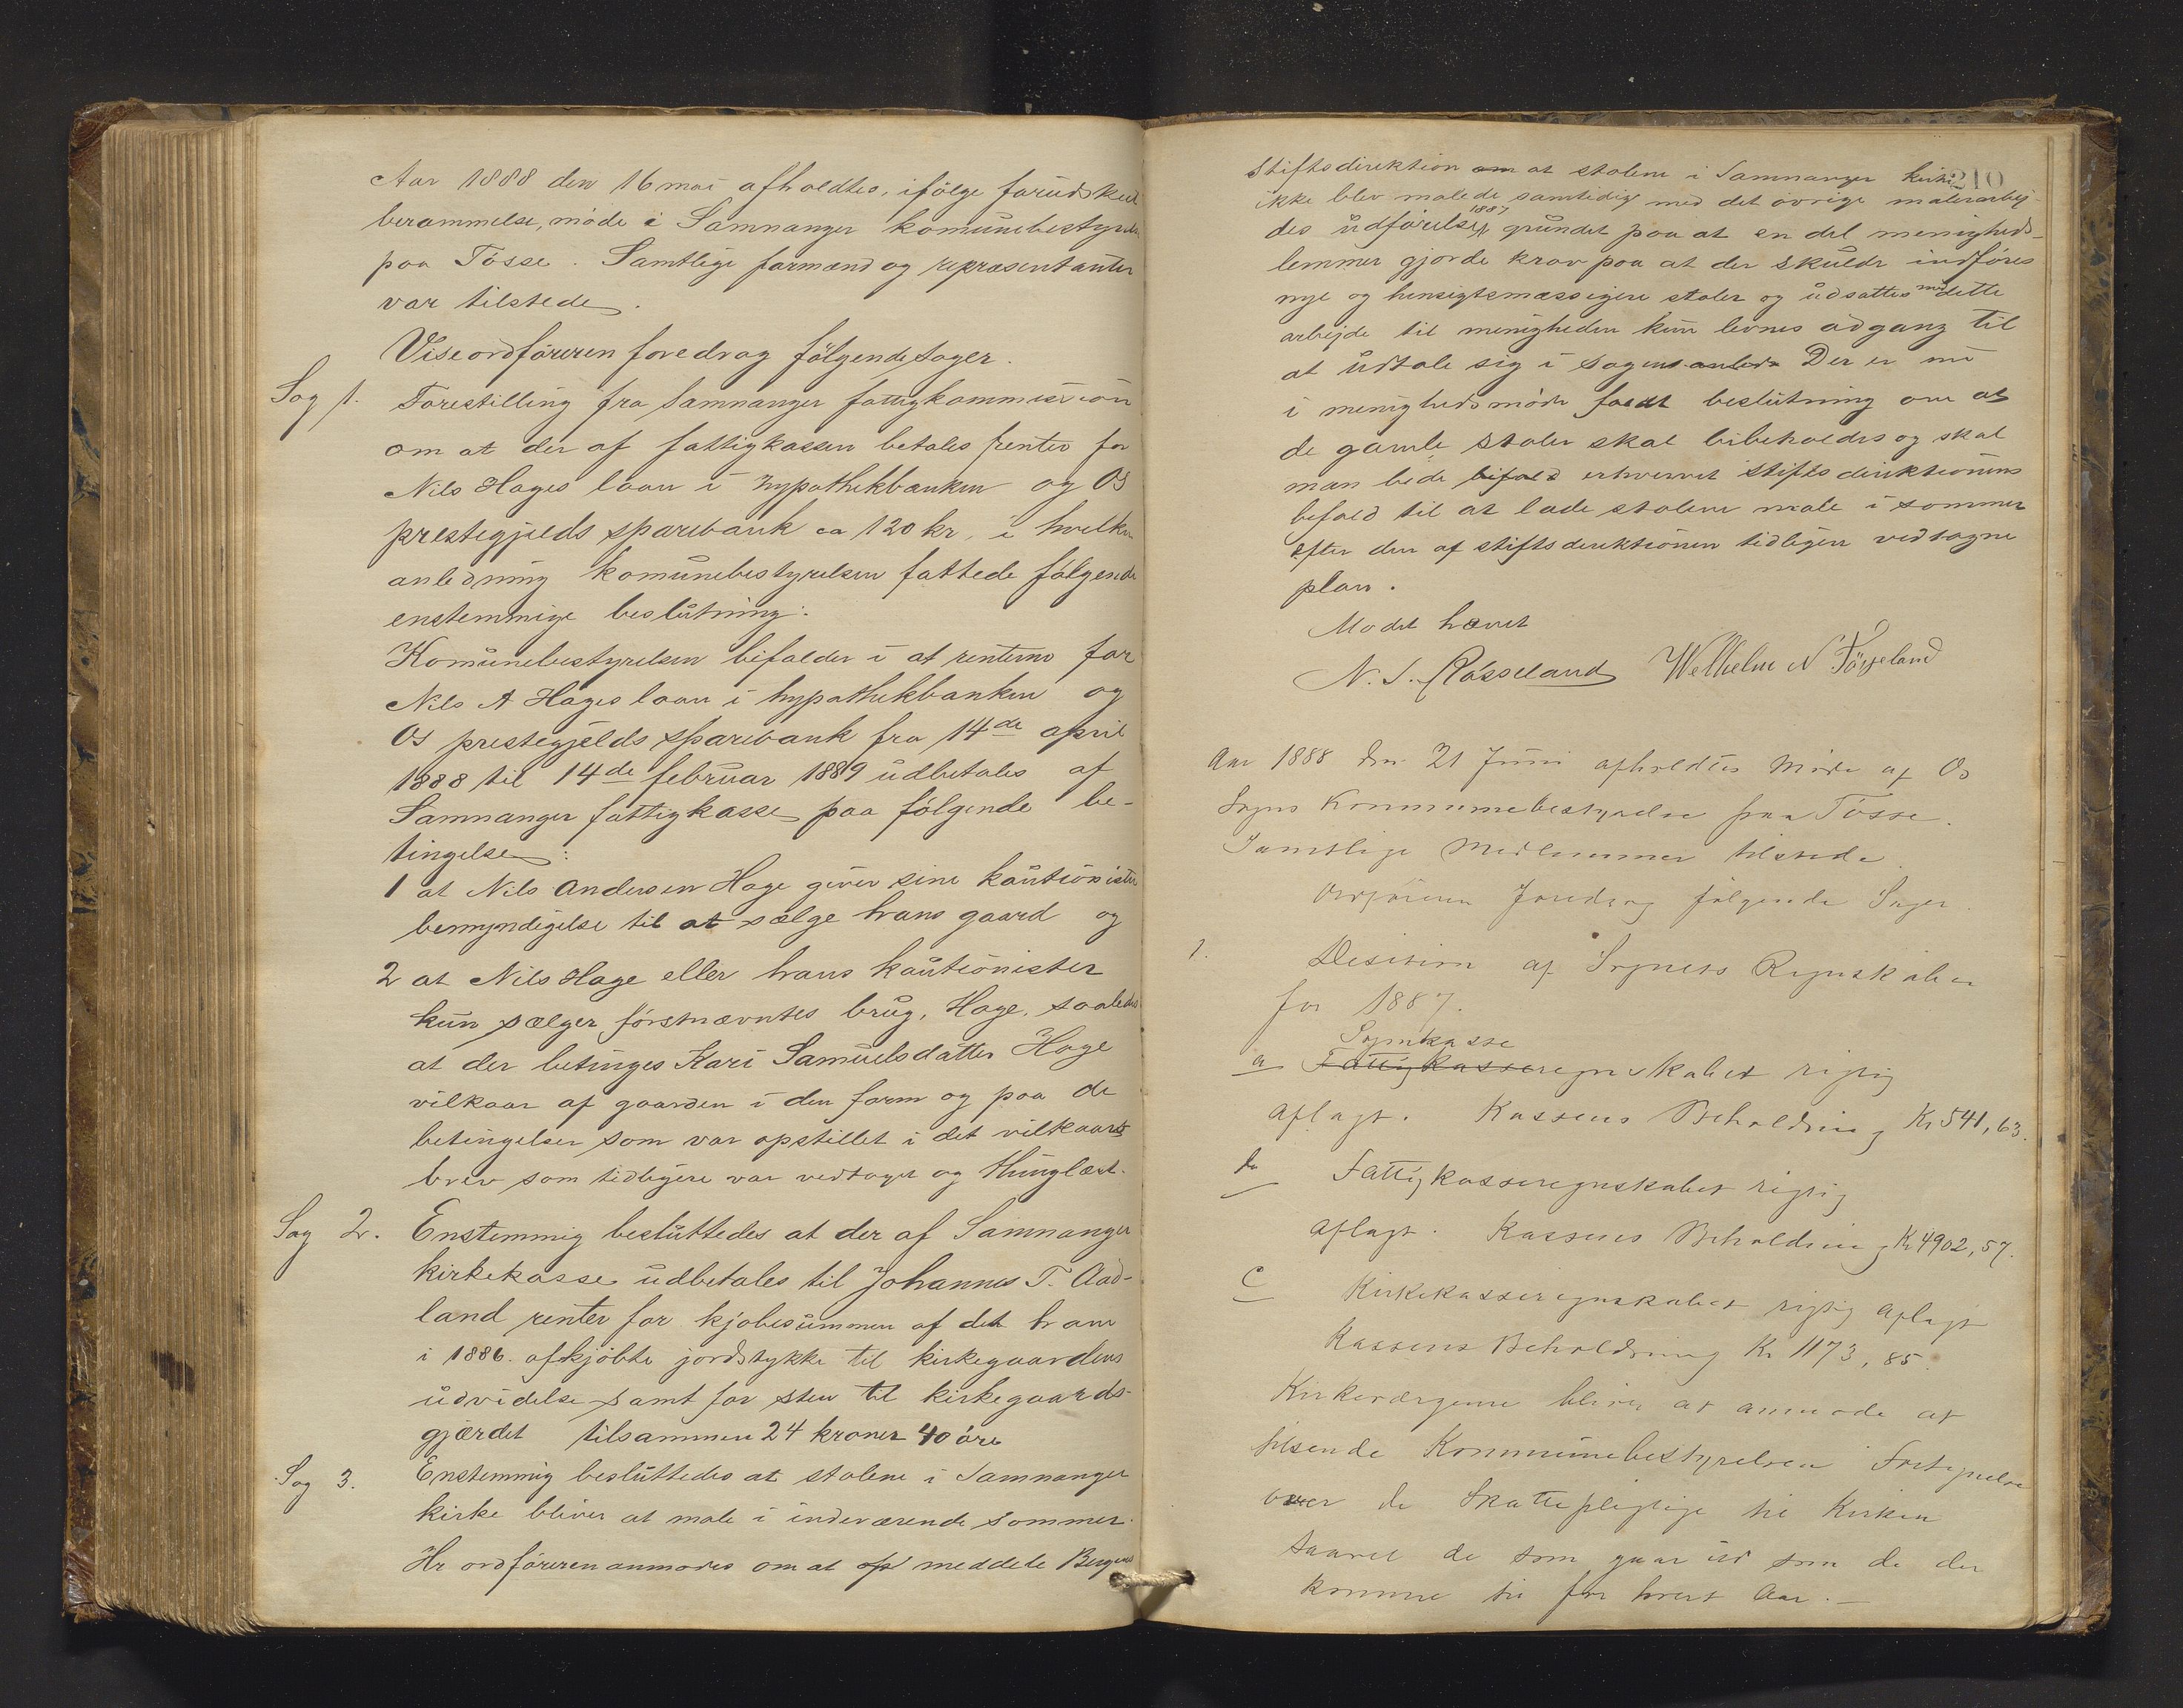 Aar 1888 den 16 mai afholdtes, ifölge forudskeet
berammelse, möde i Samnanger komunebestyrelse
paa Tösse. Samtlige formænd og repræsentanter
var tilstede.
Viseordföreren foredrag fölgende sager.
Sag 1. Forestilling fra Samnanger fattigkommission
om at der af fattigkassen betales renter for
Nils Hages laan i hypothekbanken og Os
prestegjelds sparebank ca 120 kr, i hvilken
anledning komunebestyrelsen fattede fölgende
enstemmige beslutning:
Komunebestyrelsen bifalder i at renterne for
Nils A Hages laan i hypothekbanken og
Os prestegjelds sparebank fra 14de april
1888 til 14de februar 1889 udbetales af
Samnanger fattigkasse paa fölgende be-
tingelse:
1 at Nils Andersen Hage giver sine kautionister
bemyndigelse til at sælge hans gaard og
2 at Nils Hage eller hans kautionister
kun sælger förstnævntes brug, Hage, saaledes
at der betinges Kari Samuelsdatter Hage
vilkaar af gaarden i den form og paa de
betingelser som var opstillet i det vilkaars
brev som tidligere var vedtaget og thinglæst.
Sag 2. Enstemmig besluttedes at der af Samnanger
kirkekasse udbetales til Johannes T. Aad-
land renter for kjöbesummen af det ham
i 1886. afkjöbte jordstykke til kirkegaardens
udvidelse samt for sten til kirkegaards-
gjærdet tilsammen 24 kroner 40 öre
Sag 3. Enstemmig besluttedes at stolene i Samnanger
kirke bliver at male i indeværende sommer.
Hr ordföreren anmodes om at meddele Bergens
210
Stiftsdirektion om at stolene i Samnanger kirke
ikke blev malede samtidig med det övrige malerarbej-
des udförelse 1887 grundet paa at en del menigheds-
lemmer gjorde krav paa at der skulde indföres
nye og hensigtsmæssigere stoler og udsattes med dette
arbejde til menigheden kun levnes adgang til
at udtale sig i sagens anled. Der er nu
i menighedsmöde fattet beslutning om at
de gamle stoler skal bibeholdes og skal
man bede bifald erhvervet stiftsdirektionens
bifald til at lade stolene male i sommer
efter den af stiftsdirektionen tidligere vedtagne
plan.
Mödet hævet
N. J. Rösseland Welhelm N Tösseland
Aar 1888 den 21 Juni afholdtes Möde af Os
Sogns Kommunebestyrelse paa Tösse.
Samtlige Medlemmer tilstede.
Ordföreren foredrog fölgende Sager.
1. Desision af Sognets Regnskaber
for 1887.
Sognekasse
a Fattigkasseregnskabet rigtig
aflagt. Kassens Beholdning Kr 541,63.
b Fattigkasseregnskabet rigtig
aflagt. Kassens Beholdning Kr 4902,57.
c Kirkekasseregnskabet rigtig aflagt
Kassens Beholdning Kr 1173,85.
Kirkeværgerne bliver at anmode at
tilsende Kommunebestyrelsen Fortegnelse
over de Skattepligtige til Kirken
saavel de som gaar ud som de der
komme til for hvert Aar.—